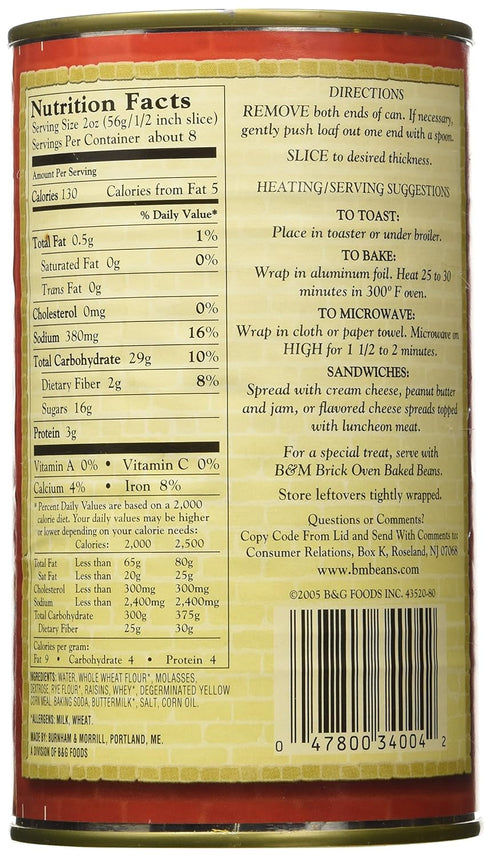 Nutrition Facts
Serving Size 2oz (56g/1/2 inch slice)
Servings Per Container about 8
Amount Per Serving
Calories 130 Calories from Fat 5
% Daily Value*
Total Fat 0.5g 1%
Saturated Fat 0g 0%
Trans Fat 0g
Cholesterol 0mg 0%
Sodium 380mg 16%
Total Carbohydrate 29g 10%
Dietary Fiber 2g 8%
Sugars 16g
Protein 3g
Vitamin A 0% • Vitamin C 0%
Calcium 4% • Iron 8%
*Percent Daily Values are based on a 2,000
calorie diet. Your daily values may be higher
or lower depending on your calorie needs:
Calories: 2,000 2,500
Total Fat Less than 65g 80g
Sat Fat Less than 20g 25g
Cholesterol Less than 300mg 300mg
Sodium Less than 2,400mg 2,400mg
Total Carbohydrate 300g 375g
Dietary Fiber 25g 30g
Calories per gram:
Fat 9 • Carbohydrate 4 • Protein 4
INGREDIENTS: WATER, WHOLE WHEAT FLOUR*, MOLASSES,
DEXTROSE, RYE FLOUR*, RAISINS, WHEY*, DEGERMINATED YELLOW
CORN MEAL, BAKING SODA, BUTTERMILK*, SALT, CORN OIL.
*ALLERGENS: MILK, WHEAT.
MADE BY: BURNHAM & MORRILL, PORTLAND, ME.
A DIVISION OF B&G FOODS
DIRECTIONS
REMOVE both ends of can. If necessary,
gently push loaf out one end with a spoon.
SLICE to desired thickness.
HEATING/SERVING SUGGESTIONS
TO TOAST:
Place in toaster or under broiler.
TO BAKE:
Wrap in aluminum foil. Heat 25 to 30
minutes in 300° F oven.
TO MICROWAVE:
Wrap in cloth or paper towel. Microwave on
HIGH for 1 1/2 to 2 minutes.
SANDWICHES:
Spread with cream cheese, peanut butter
and jam, or flavored cheese spreads topped
with luncheon meat.
For a special treat, serve with
B&M Brick Oven Baked Beans.
Store leftovers tightly wrapped.
Questions or Comments?
Copy Code From Lid and Send With Comments to:
Consumer Relations, Box K, Roseland, NJ 07068
www.bmbeans.com
©2005 B&G FOODS INC. 43520-80
0 47800 34004 2